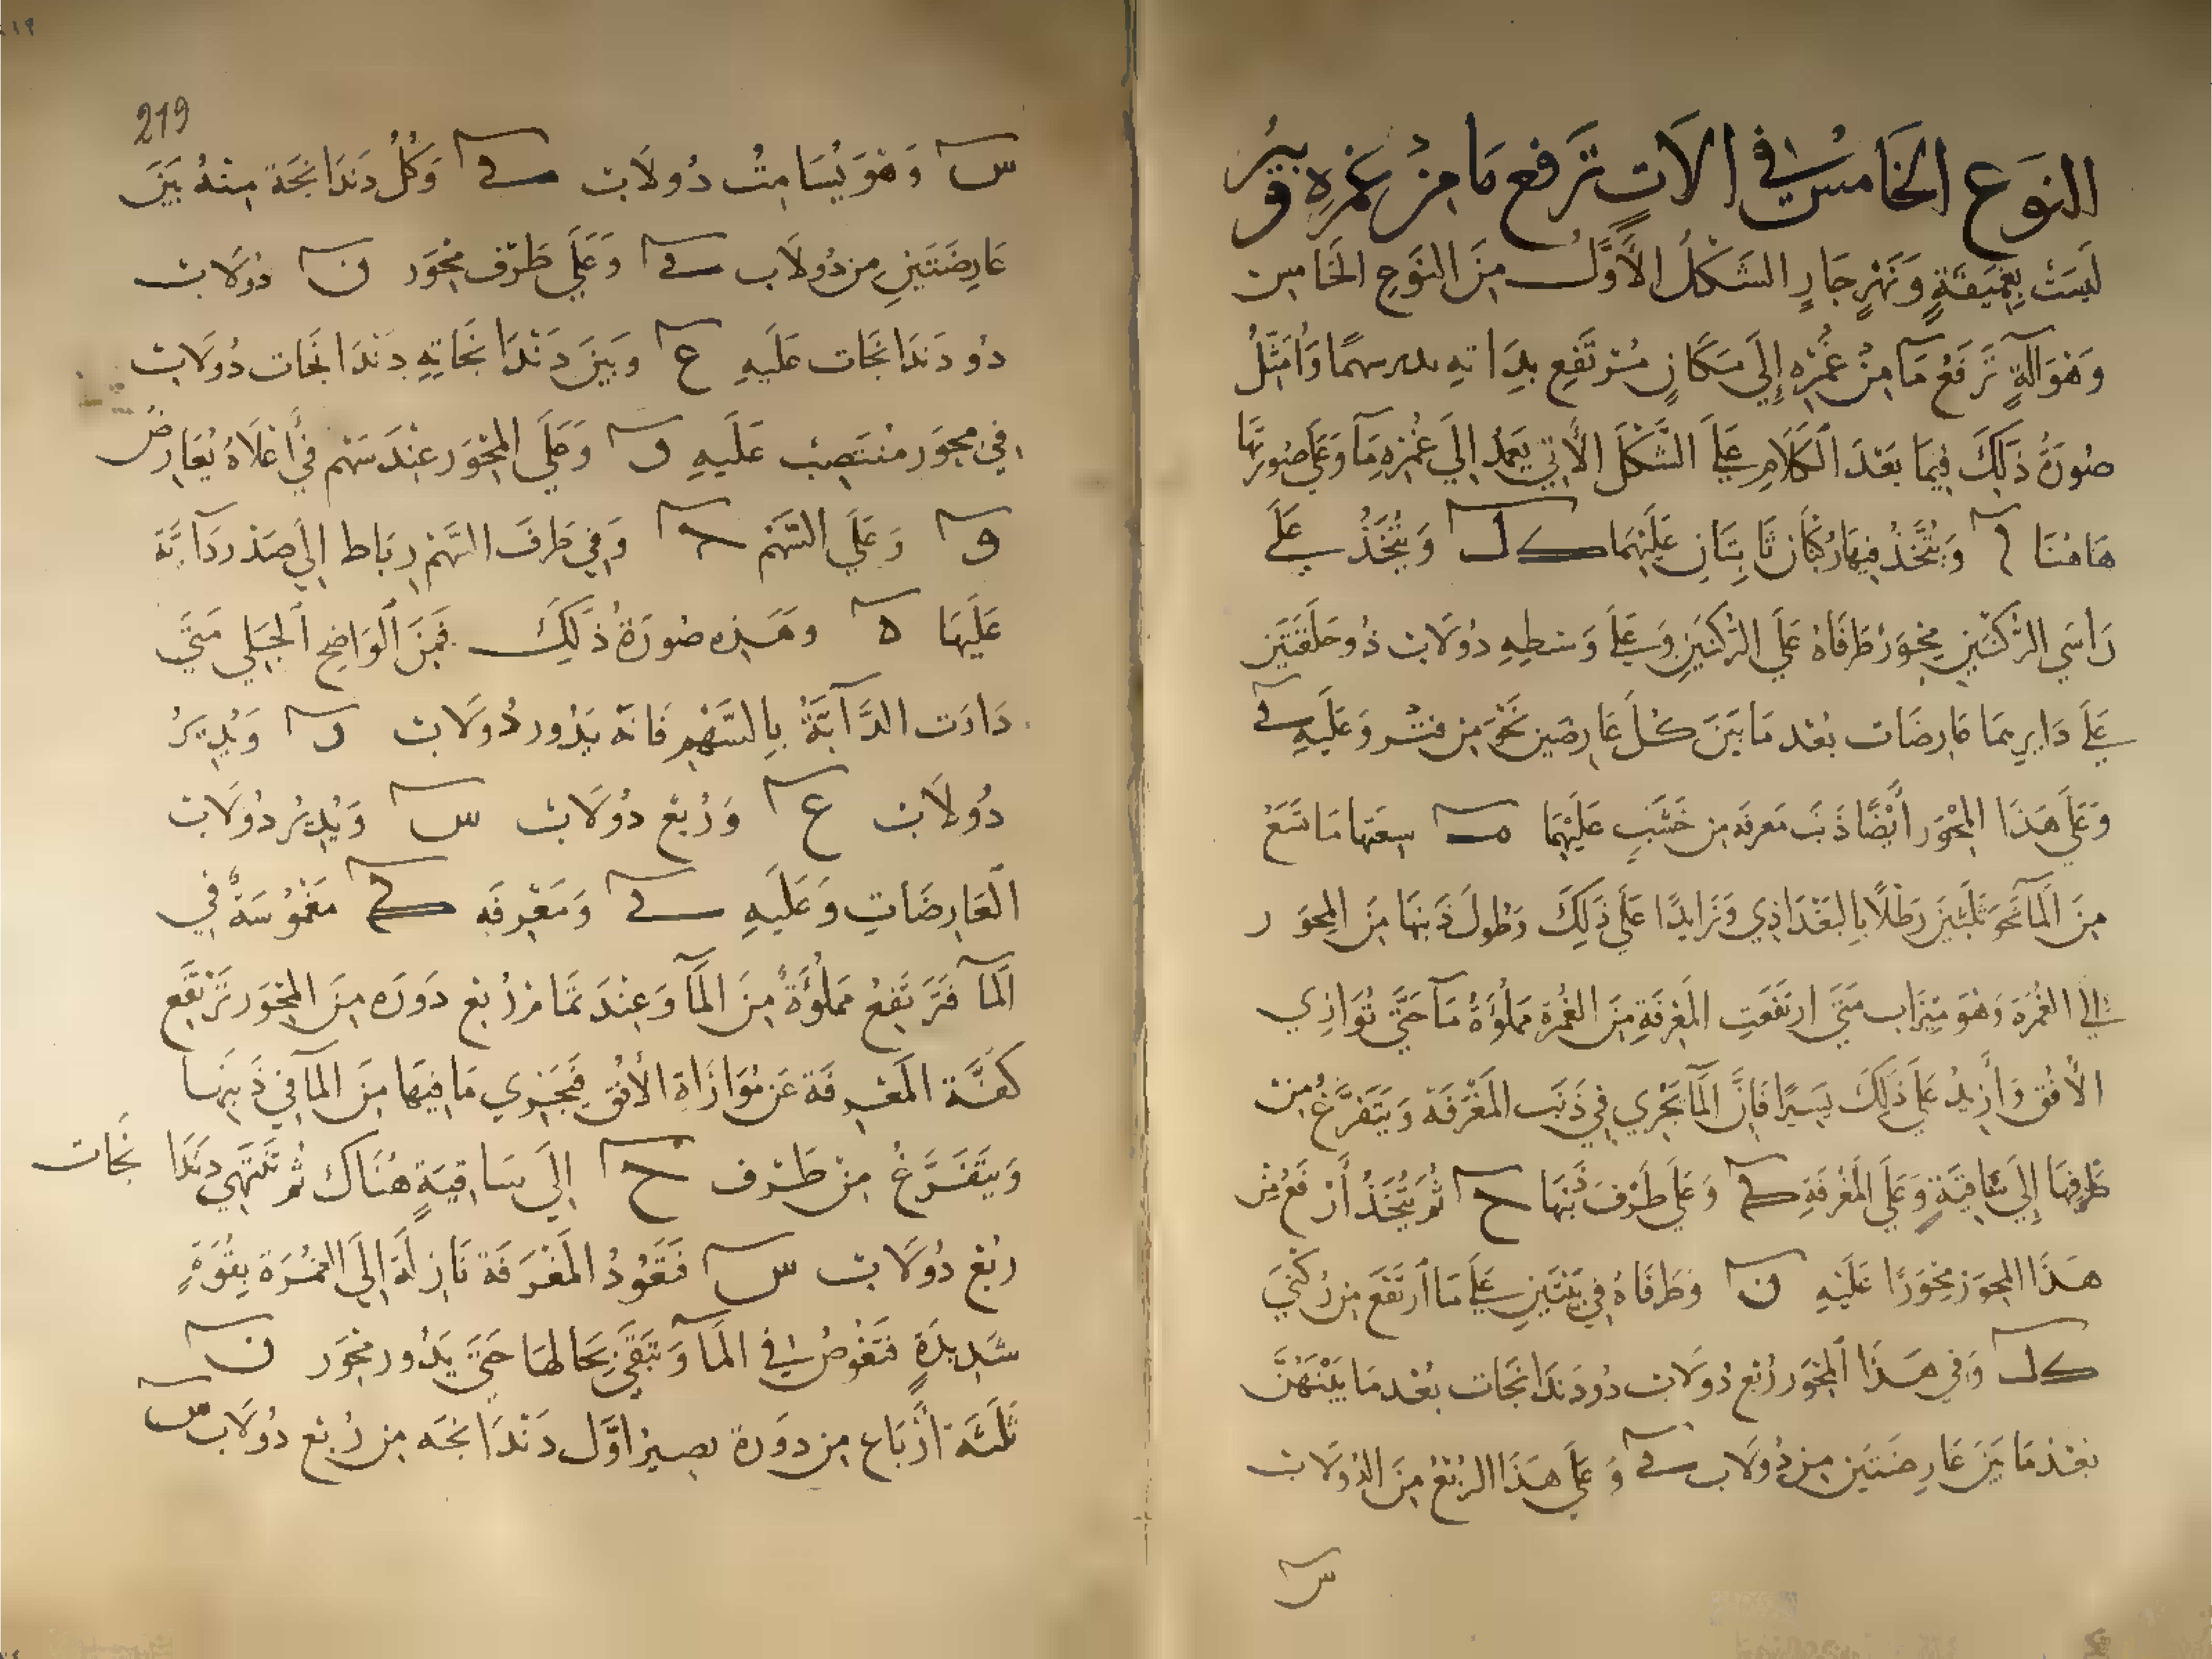 النوع الخامس في الات ترفع ما من غمره وبير
ليست بعميقة ونهر جار الشكل الاول من النوع الخامس
وهو آلة ترفع مآ من غمره إلى مكان مرتفع بدابة وأمثل
صورة ذلك فيما بعد الكلام على الشكل الاتي يعمد الى غمره مآ وعلى صورتها
هاهنا م ويتخذ فيها ركنان ثابتان عليهما ك ل ويتخذ على
راسي الركنين محور طرفاه على الركنين وعلى وسطه دولاب ذو حلقتين
على دايرهما عارضات بعد ما بين كل عارضين نحو من فتر وعليه
وعلى هذا المحور أيضا ذنب مغرفه من خشب عليهما سعتها ما تسع
من المآ نحو ثلثين رطلا بالبغداذي وزايدا على ذلك وطول ذنبها من المحور
إلى الغمرة وهو ميزاب متى ارتفعت المغرفة من الغمرة مملوة مآ حتى توازي
الأفق وأزيد على ذلك يسيرا فإن المآ يجري في ذنب المغرفة ويتفرغ من
طرفها إلى ساقية وعلى المغرفة وعلى طرف ذنبها ح ثم يتخذ أرفع من
هذا المحور محورا عليه ن وطرفاه في بيتين على ما ارتفع من ركني
ك ل وفي هذا المحور ربع دولاب ذو دندانجات بعد ما بينهن
بعد ما بين عارضتين من دولاب وعلى هذا الربع من الدولاب
س
219
س وهو يسامت دولاب وكل دندانجة منه بين
عارضتين من دولاب وعلى طرف محور ن دولاب
ذو دندانجات عليه ع وبين دندانجاته دندانجات دولاب
في محور منتصب عليه و وعلى المحور عند سهم في أعلاه يعارض
وعلى السهم وفي طرف السهم رباط الى صدر دآبة
عليها ه وهذه صورة ذلك فمن الواضح الجلي متى
دارت الدآبة بالسهم فانه يدور دولاب و ويدير
دولاب ع وربع دولاب س ويدير دولاب
العارضات وعليه ومغرفه مغموسة في
المآ فترتفع مملوة من المآ وعند تمام ربع دوره من المحور ترتفع
كفة المغرفة عن موازاة الأفق فيجري ما فيها من المآ في ذنبها
ويتفرغ من طرف ح إلى ساقية هناك ثم تنتهي دندانجات
ربع دولاب س فتعود المغرفة نازلة إلى الغمرة بقوة
شديدة فتغوص في المآ وتبقى بحالها حتى يدور محور ن
ثلثة أرباع من دورة يصير اول دندانجه من ربع دولاب س